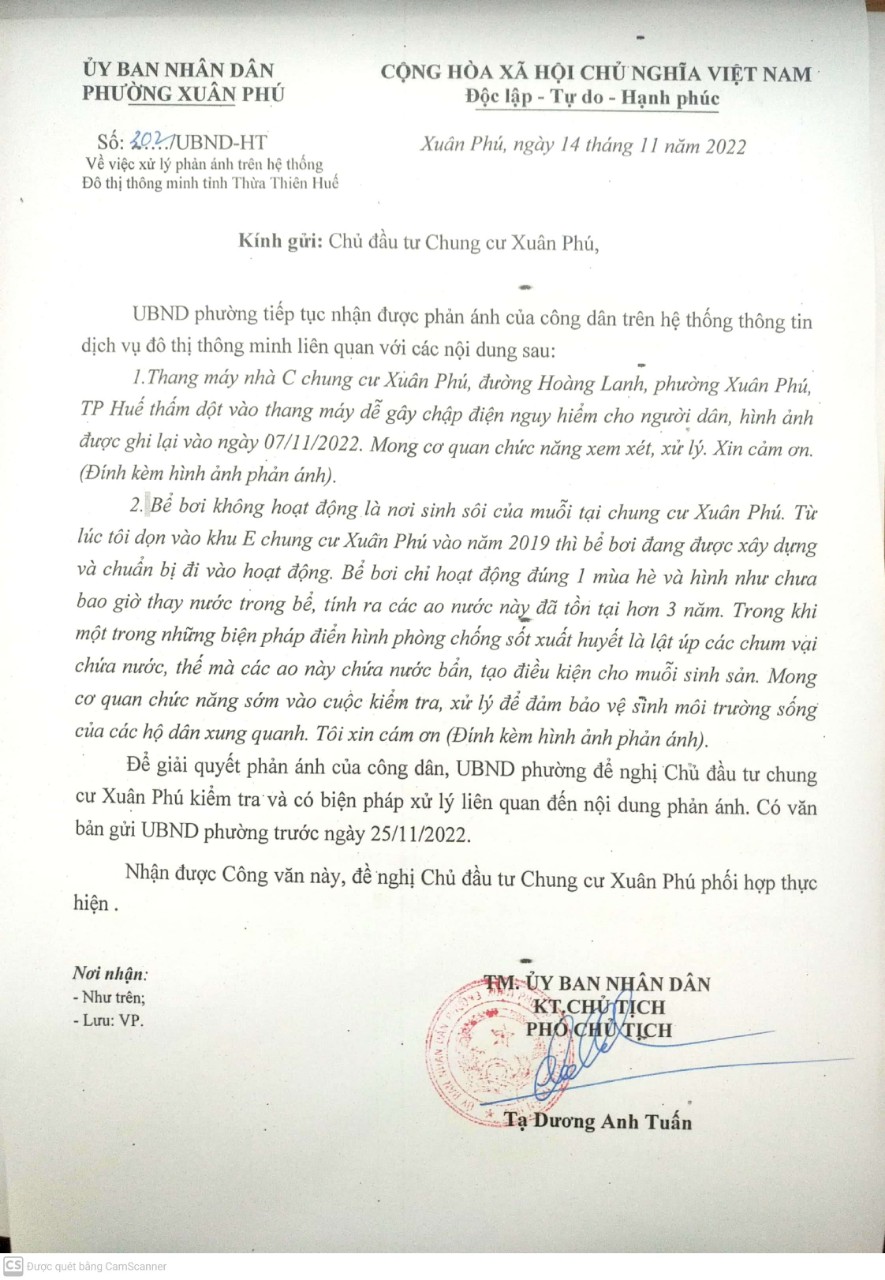 ỦY BAN NHÂN DÂN
PHƯỜNG XUÂN PHÚ
CỘNG HÒA XÃ HỘI CHỦ NGHĨA VIỆT NAM
Độc lập - Tự do - Hạnh phúc
Số: /UBND-HT
Về việc xử lý phản ánh trên hệ thống
Đô thị thông minh tỉnh Thừa Thiên Huế
Xuân Phú, ngày 14 tháng 11 năm 2022
Kính gửi: Chủ đầu tư Chung cư Xuân Phú,
UBND phường tiếp tục nhận được phản ánh của công dân trên hệ thống thông tin
dịch vụ đô thị thông minh liên quan với các nội dung sau:
1.Thang máy nhà C chung cư Xuân Phú, đường Hoàng Lanh, phường Xuân Phú,
TP Huế thấm dột vào thang máy dễ gây chập điện nguy hiểm cho người dân, hình ảnh
được ghi lại vào ngày 07/11/2022. Mong cơ quan chức năng xem xét, xử lý. Xin cảm ơn.
(Đính kèm hình ảnh phản ánh).
2. Bể bơi không hoạt động là nơi sinh sôi của muỗi tại chung cư Xuân Phú. Từ
lúc tôi dọn vào khu E chung cư Xuân Phú vào năm 2019 thì bể bơi đang được xây dựng
và chuẩn bị đi vào hoạt động. Bể bơi chỉ hoạt động đúng 1 mùa hè và hình như chưa
bao giờ thay nước trong bể, tính ra các ao nước này đã tồn tại hơn 3 năm. Trong khi
một trong những biện pháp điển hình phòng chống sốt xuất huyết là lật úp các chum vại
chứa nước, thế mà các ao này chứa nước bẩn, tạo điều kiện cho muỗi sinh sản. Mong
cơ quan chức năng sớm vào cuộc kiểm tra, xử lý để đảm bảo vệ sinh môi trường sống
của các hộ dân xung quanh. Tôi xin cám ơn (Đính kèm hình ảnh phản ánh).
Để giải quyết phản ánh của công dân, UBND phường đề nghị Chủ đầu tư chung
cư Xuân Phú kiểm tra và có biện pháp xử lý liên quan đến nội dung phản ánh. Có văn
bản gửi UBND phường trước ngày 25/11/2022.
Nhận được Công văn này, đề nghị Chủ đầu tư Chung cư Xuân Phú phối hợp thực
hiện .
Nơi nhận:
- Như trên;
- Lưu: VP.
TM. ỦY BAN NHÂN DÂN
KT.CHỦ TỊCH
PHÓ CHỦ TỊCH
Tạ Dương Anh Tuấn
CS Được quét bằng CamScanner